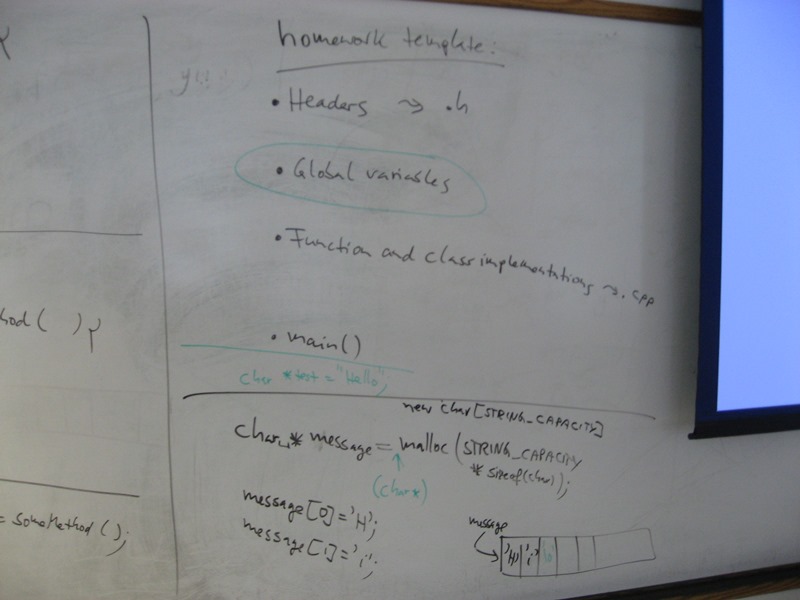 homework template:
• Headers → .h
• Global variables
• Function and class implementations → .cpp
• main()
char *test = "Hello";
new char[STRING_CAPACITY]
char * message = malloc (STRING_CAPACITY
* sizeof(char));
(char*)
message[0]='H';
message[1]='i';
message
'H' 'i' \0
hod( ) {
= someMethod();